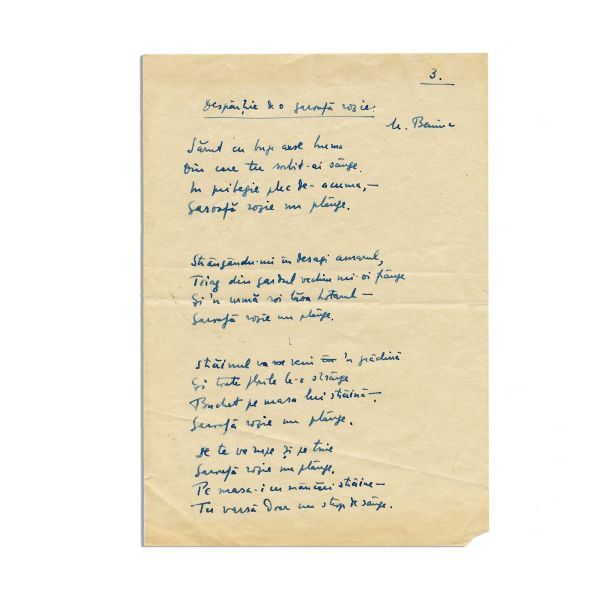 3.
Despărțire de o garoafă roșie.
M. Beniuc
Sărut cu buze arse huma
Din care tu sorbit-ai sânge.
În pribegie plec de-acuma,—
Garoafă roșie nu plânge.
Strângându-mi în desagi amarul,
Toiag din gardul vechiu mi-oi frânge
Și 'n urmă voi lăsa hotarul—
Garoafă roșie nu plânge.
Străinul va veni 'n grădină
Și toate florile le-o strânge
Buchet pe masa lui străină—
Garoafă roșie nu plânge.
De te va rupe și pe tine
Garoafă roșie nu plânge,
Pe masa-i cu mâncări străine—
Tu varsă doar un strop de sânge.